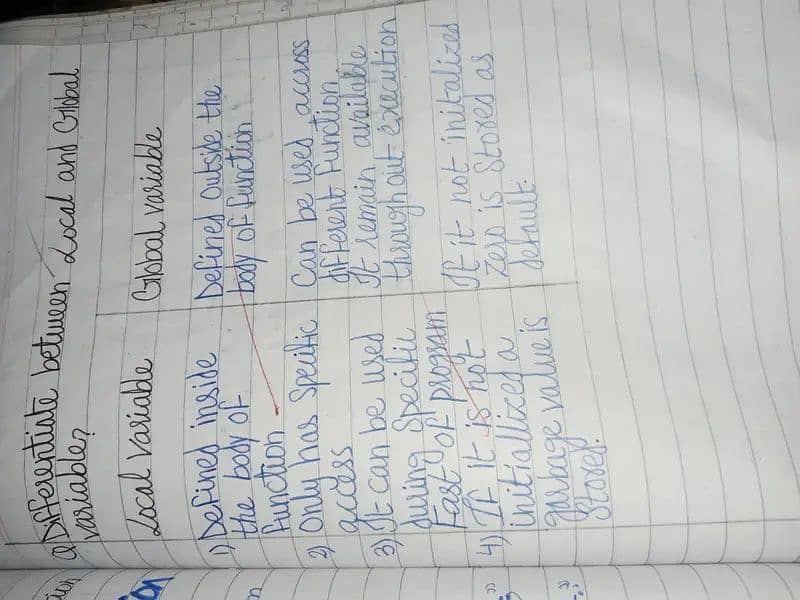 Q) Differentiate between Local and Global
variable?
Local variable
Global variable
1) Defined inside
the body of
function
Defined outside the
body of function
2) Only has specific
access
Can be used across
different function
3) It can be used
during specific
Fast of program
It remain available
throughout execution
4) If it is not
initiallized a
garbage value is
stored.
If it not initalized
zero is stored as
default.